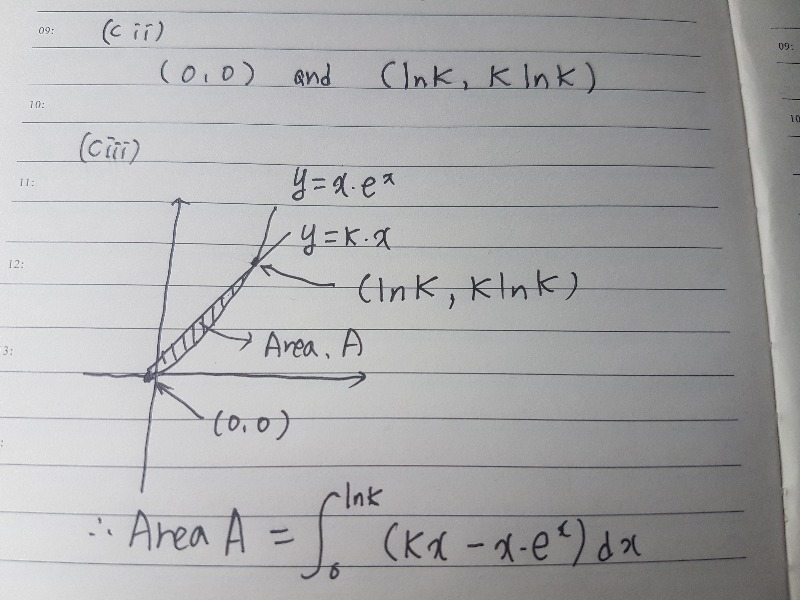 09:
(c ii)
09:
(0,0) and (lnK, K lnK)
10:
10
(ciii)
11:
y=x·eˣ
y=K·x
12:
(lnK, KlnK)
3:
Area, A
(0,0)
:
∴ Area A = ∫₀^lnK (Kx - x·eˣ) dx